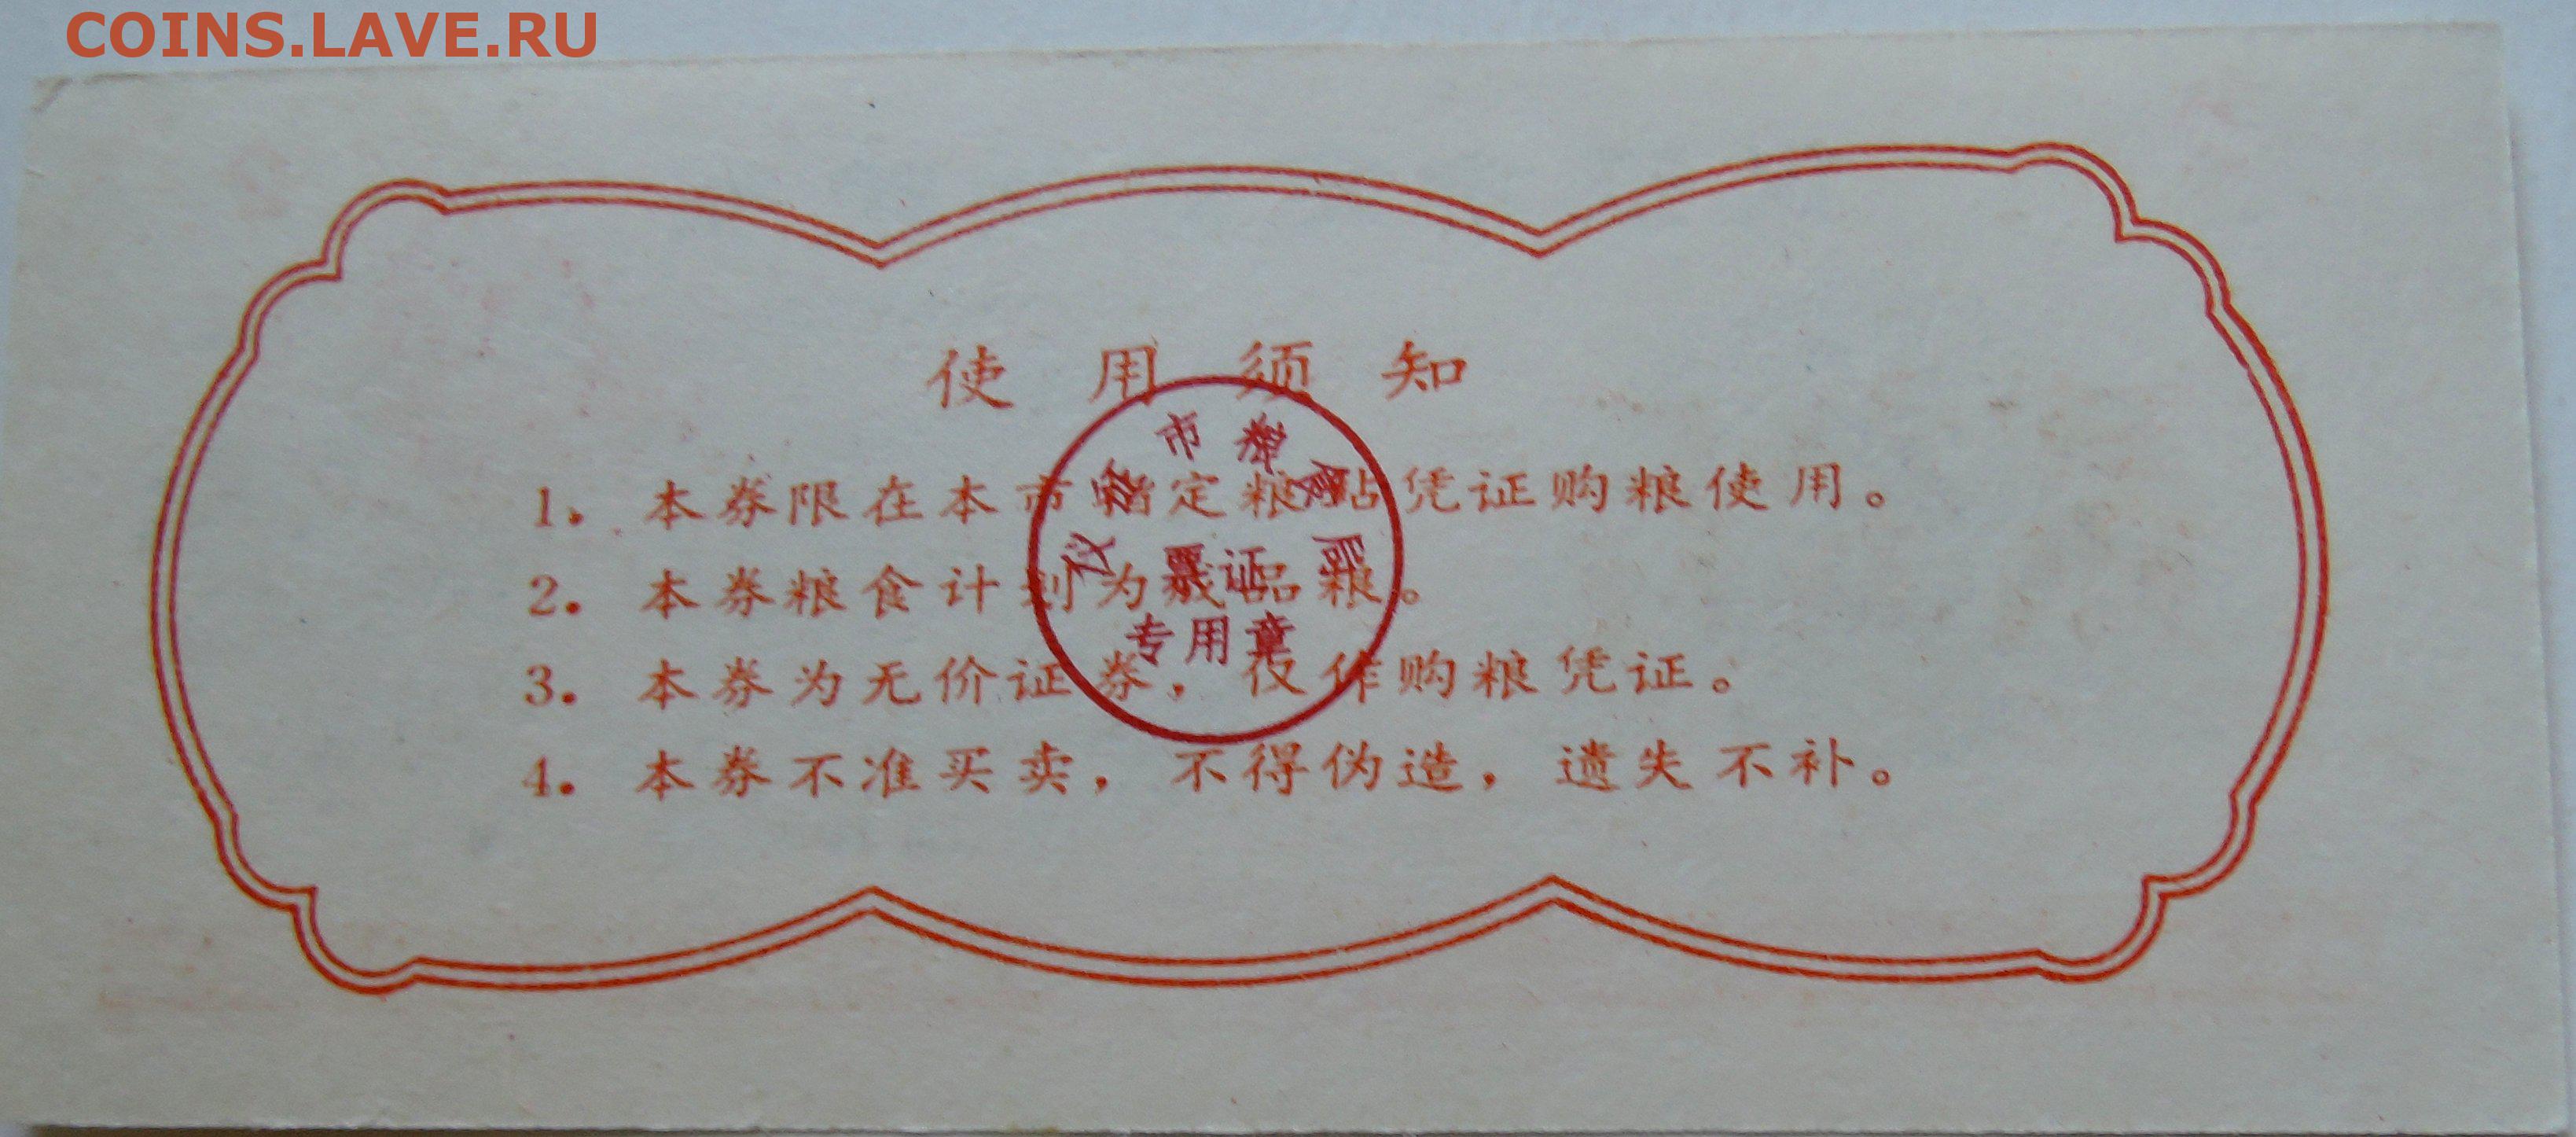 COINS.LAVE.RU
使用须知
1. 本券限在本市指定粮站凭证购粮使用。
2. 本券粮食计划为成品粮。
3. 本券为无价证券，仅作购粮凭证。
4. 本券不准买卖，不得伪造，遗失不补。
市粮食局
票证
专用章